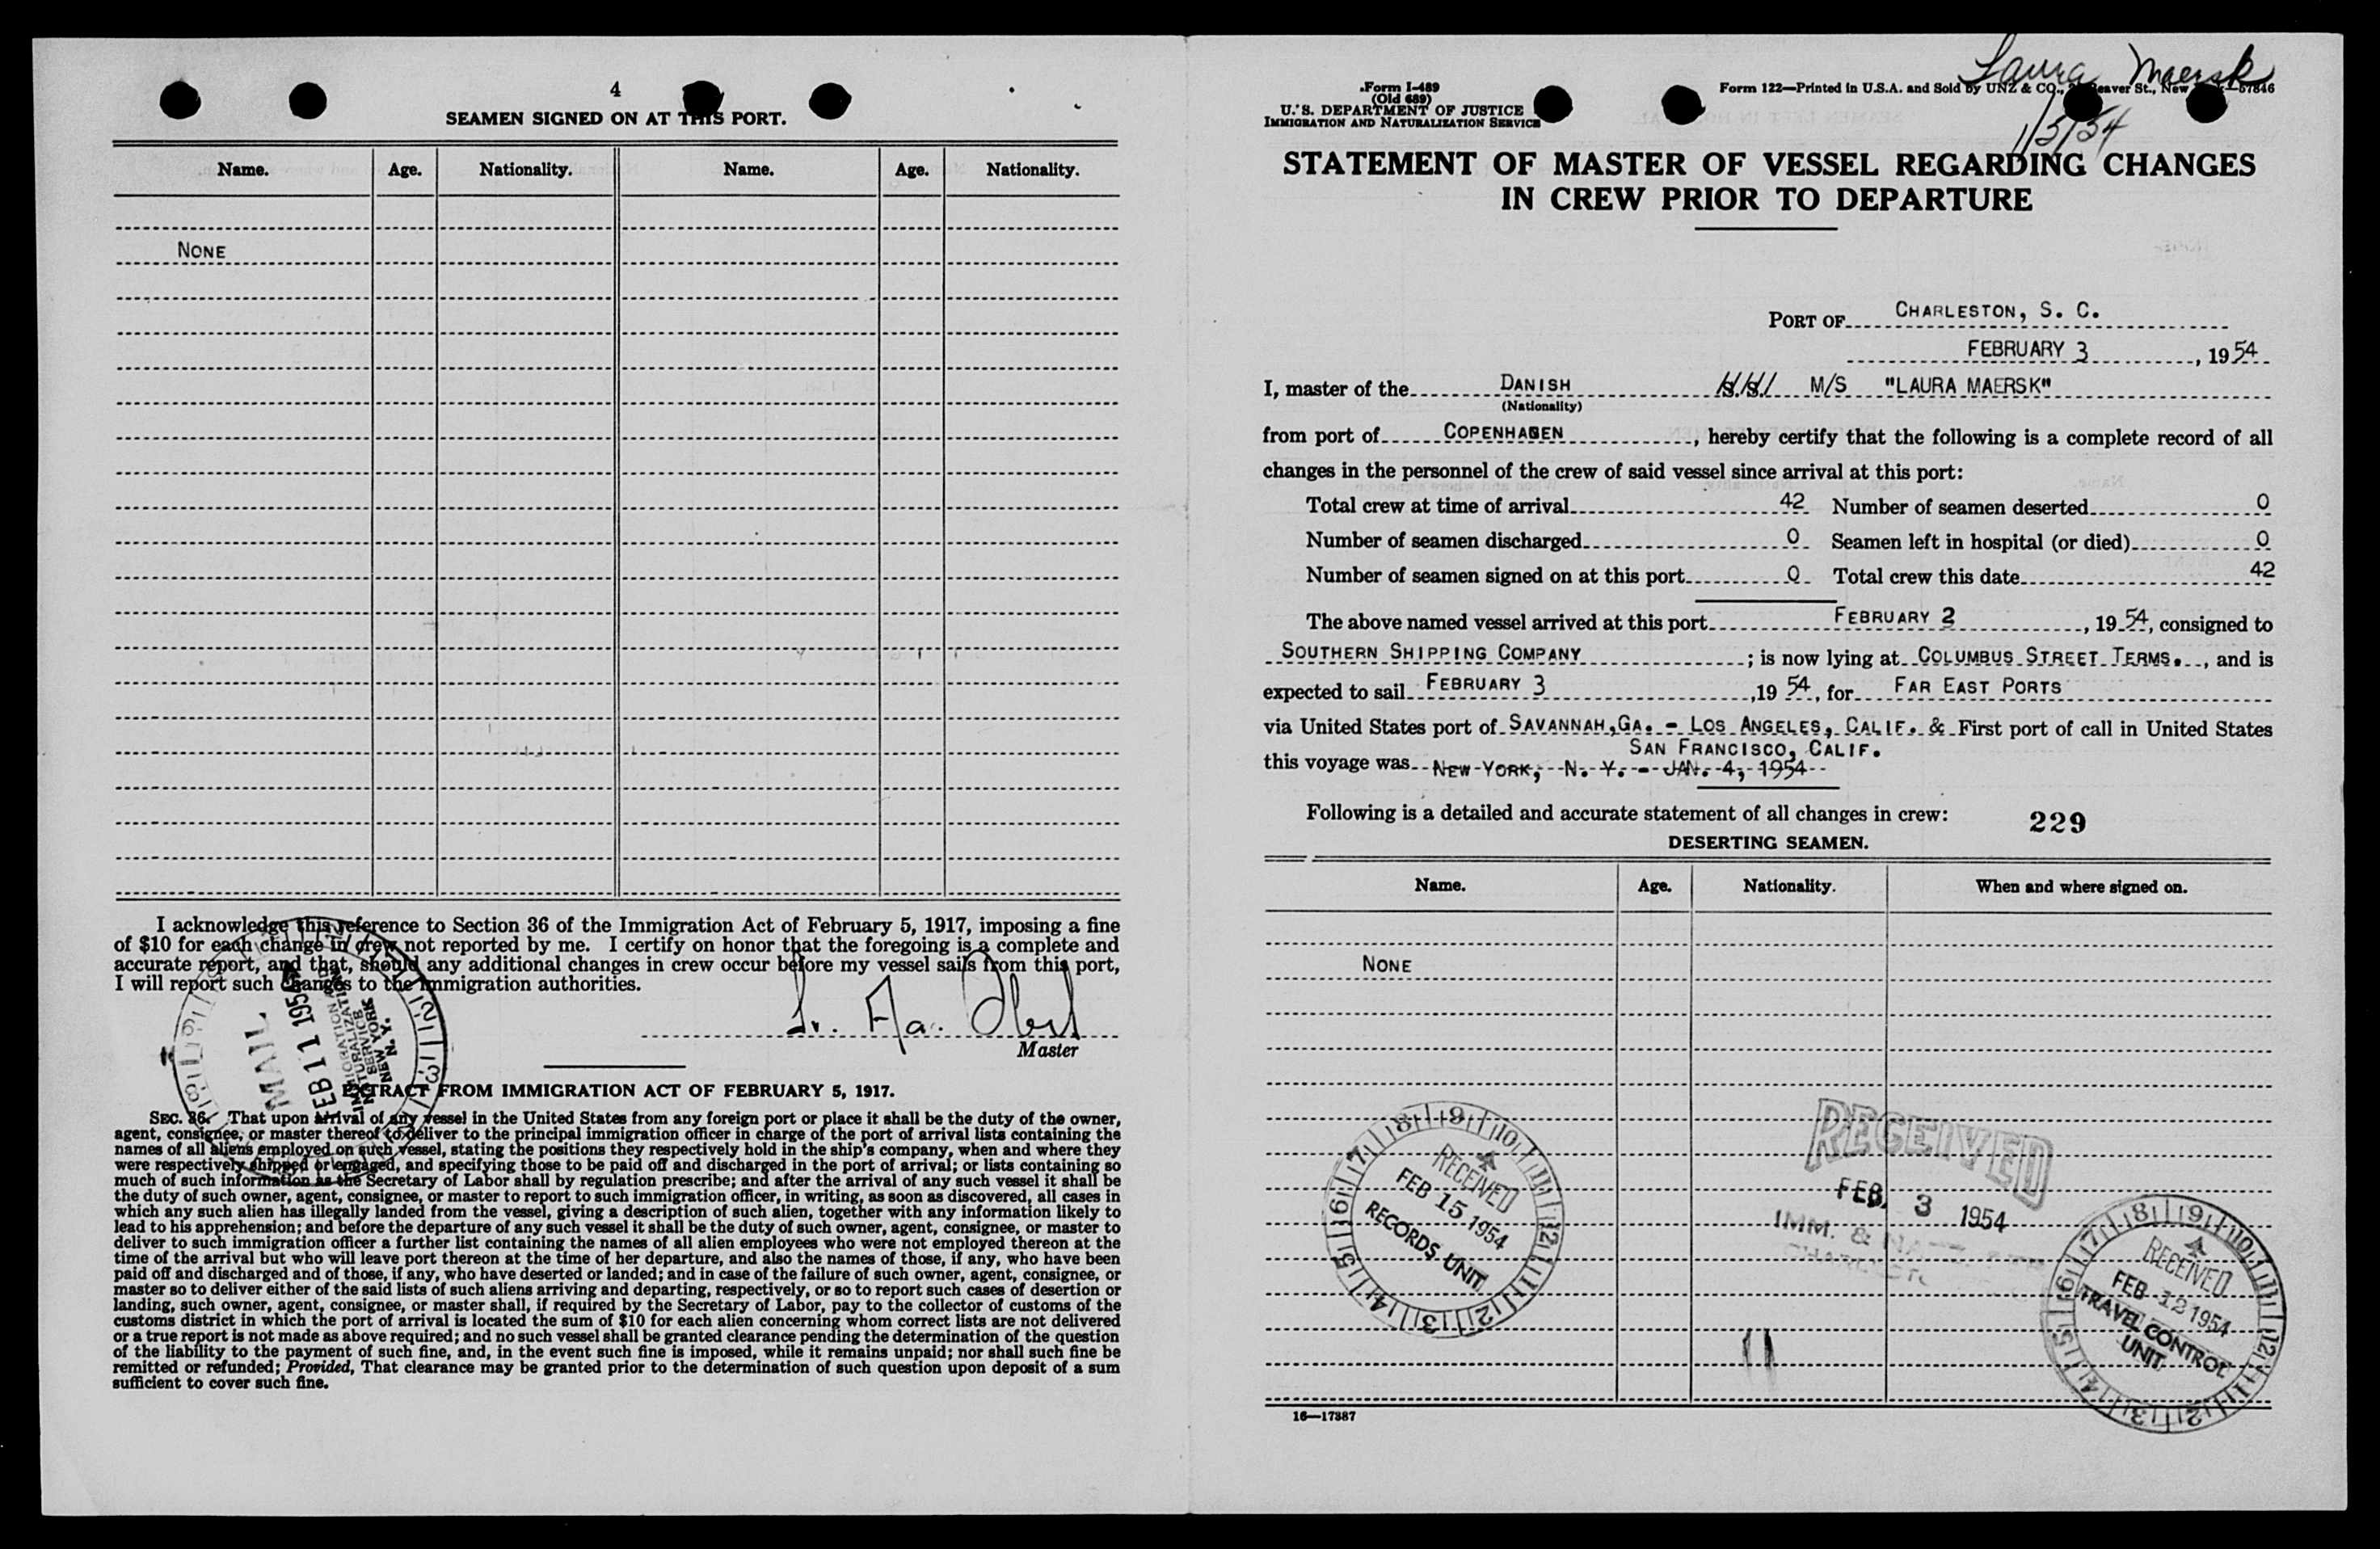 4
SEAMEN SIGNED ON AT THIS PORT.
Name. Age. Nationality. Name. Age. Nationality.
NONE
I acknowledge this reference to Section 36 of the Immigration Act of February 5, 1917, imposing a fine
of $10 for each change in crew not reported by me. I certify on honor that the foregoing is a complete and
accurate report, and that, should any additional changes in crew occur before my vessel sails from this port,
I will report such changes to the immigration authorities.
Master
MAIL
FEB 11 1954
IMMIGRATION AND
NATURALIZATION
SERVICE
NEW YORK
N. Y.
EXTRACT FROM IMMIGRATION ACT OF FEBRUARY 5, 1917.
SEC. 36. That upon arrival of any vessel in the United States from any foreign port or place it shall be the duty of the owner,
agent, consignee, or master thereof to deliver to the principal immigration officer in charge of the port of arrival lists containing the
names of all aliens employed on such vessel, stating the positions they respectively hold in the ship's company, when and where they
were respectively shipped or engaged, and specifying those to be paid off and discharged in the port of arrival; or lists containing so
much of such information as the Secretary of Labor shall by regulation prescribe; and after the arrival of any such vessel it shall be
the duty of such owner, agent, consignee, or master to report to such immigration officer, in writing, as soon as discovered, all cases in
which any such alien has illegally landed from the vessel, giving a description of such alien, together with any information likely to
lead to his apprehension; and before the departure of any such vessel it shall be the duty of such owner, agent, consignee, or master to
deliver to such immigration officer a further list containing the names of all alien employees who were not employed thereon at the
time of the arrival but who will leave port thereon at the time of her departure, and also the names of those, if any, who have been
paid off and discharged and of those, if any, who have deserted or landed; and in case of the failure of such owner, agent, consignee, or
master so to deliver either of the said lists of such aliens arriving and departing, respectively, or so to report such cases of desertion or
landing, such owner, agent, consignee, or master shall, if required by the Secretary of Labor, pay to the collector of customs of the
customs district in which the port of arrival is located the sum of $10 for each alien concerning whom correct lists are not delivered
or a true report is not made as above required; and no such vessel shall be granted clearance pending the determination of the question
of the liability to the payment of such fine, and, in the event such fine is imposed, while it remains unpaid; nor shall such fine be
remitted or refunded; Provided, That clearance may be granted prior to the determination of such question upon deposit of a sum
sufficient to cover such fine.
Laura Maersk
1/5/54
Form I-489
(Old 689)
U. S. DEPARTMENT OF JUSTICE
IMMIGRATION AND NATURALIZATION SERVICE
Form 122—Printed in U.S.A. and Sold by UNZ & CO., Beaver St., New 57846
STATEMENT OF MASTER OF VESSEL REGARDING CHANGES
IN CREW PRIOR TO DEPARTURE
PORT OF CHARLESTON, S. C.
FEBRUARY 3, 1954
I, master of the DANISH S.S. M/S "LAURA MAERSK"
(Nationality)
from port of COPENHAGEN, hereby certify that the following is a complete record of all
changes in the personnel of the crew of said vessel since arrival at this port:
Total crew at time of arrival 42 Number of seamen deserted 0
Number of seamen discharged 0 Seamen left in hospital (or died) 0
Number of seamen signed on at this port 0 Total crew this date 42
The above named vessel arrived at this port FEBRUARY 2, 1954, consigned to
SOUTHERN SHIPPING COMPANY; is now lying at COLUMBUS STREET TERMS., and is
expected to sail FEBRUARY 3, 1954, for FAR EAST PORTS
via United States port of SAVANNAH, GA. - LOS ANGELES, CALIF. & First port of call in United States
SAN FRANCISCO, CALIF.
this voyage was NEW YORK, N. Y. - JAN. 4, 1954
Following is a detailed and accurate statement of all changes in crew:
229
DESERTING SEAMEN.
Name. Age. Nationality. When and where signed on.
NONE
RECEIVED
FEB 15 1954
RECORDS UNIT
RECEIVED
FEB. 3 1954
IMM. &
RECEIVED
FEB 12 1954
TRAVEL CONTROL
UNIT
16—17887